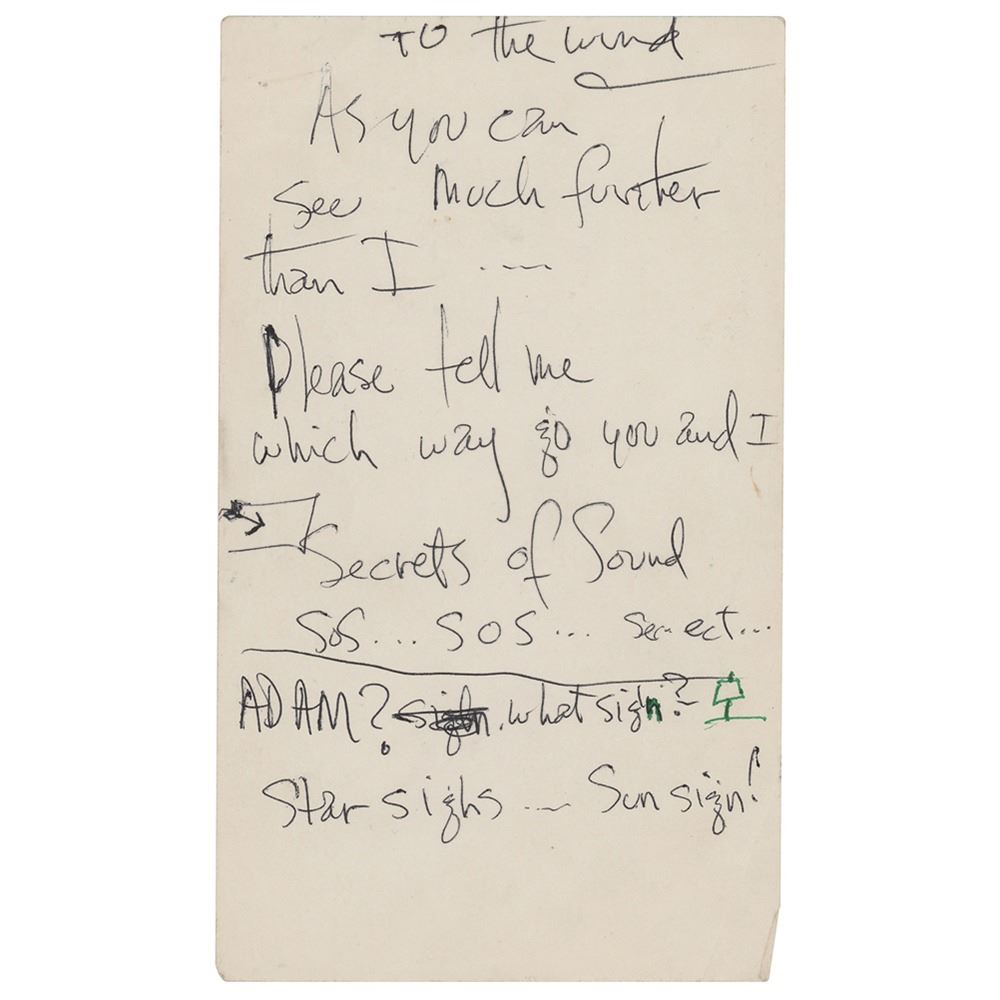 TO the wind
As you can
see much further
than I ....
Please tell me
which way go you and I
Secrets of Sound
SOS... SOS... Sec. ect...
ADAM? sign. what sign?
Star sighs .... Sun sign!